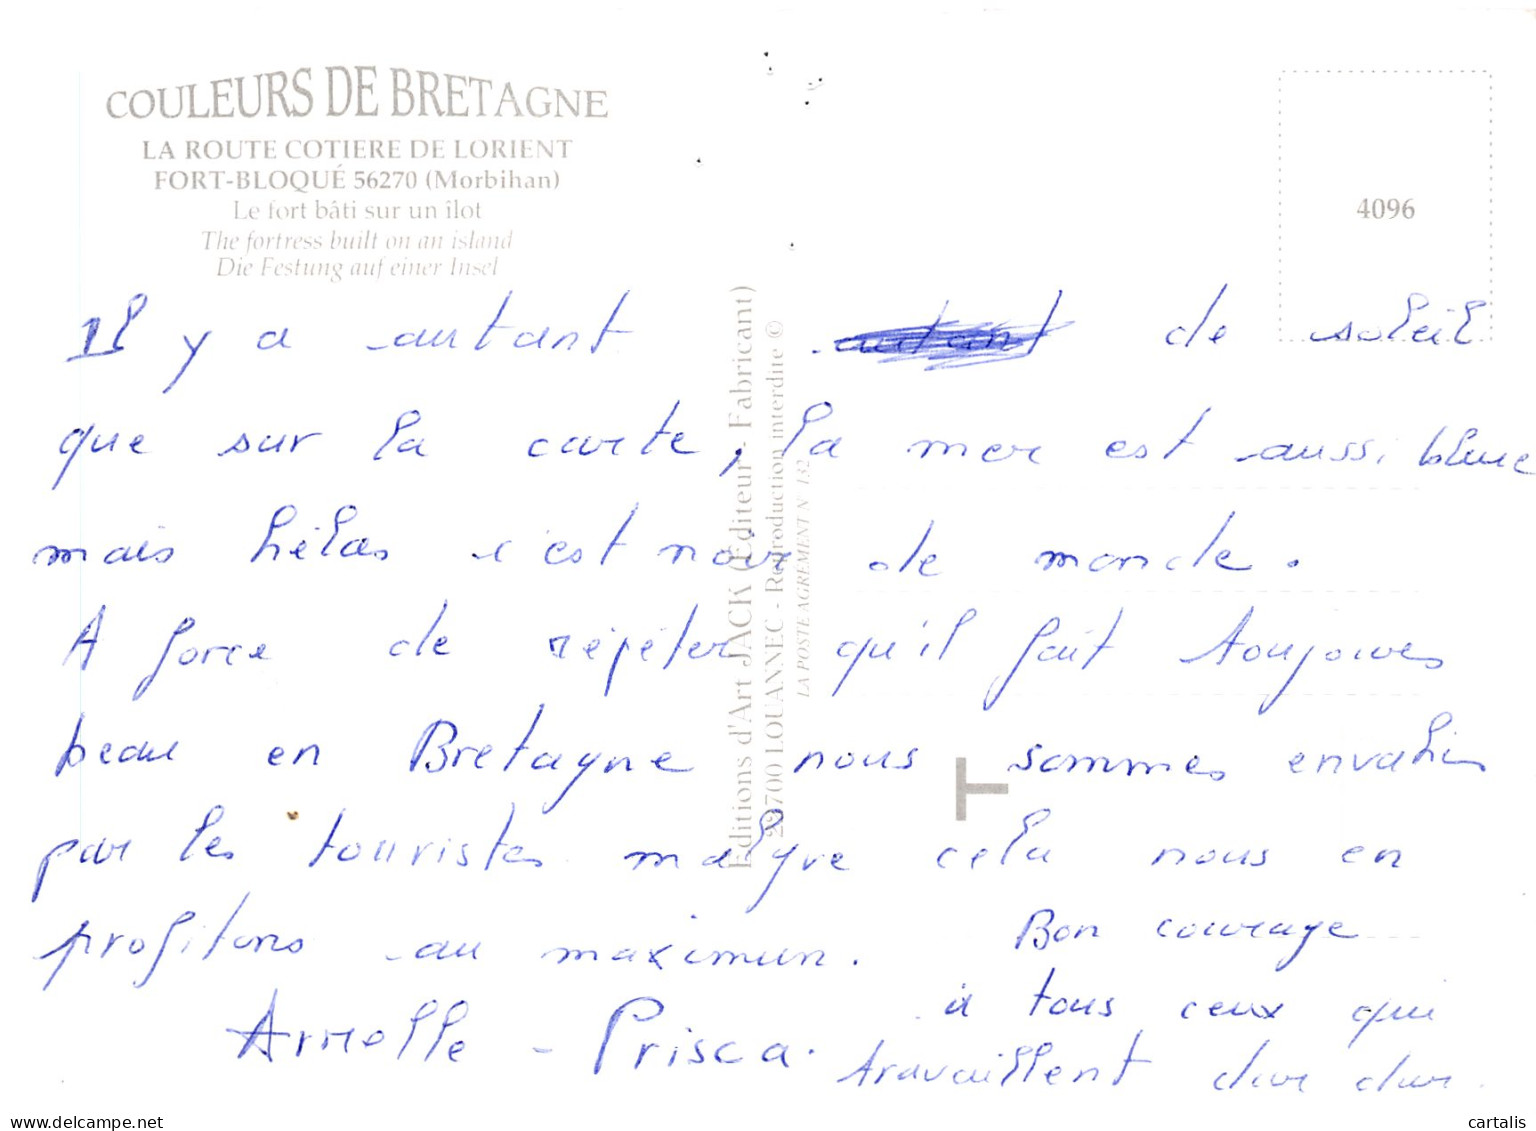 COULEURS DE BRETAGNE
LA ROUTE COTIERE DE LORIENT
FORT-BLOQUÉ 56270 (Morbihan)
Le fort bâti sur un îlot
The fortress built on an island
Die Festung auf einer Insel
4096
Il y a autant autant de soleil
que sur la carte, la mer est aussi bleue
mais hélas c'est noir de monde.
A force de répéter qu'il fait toujours
beau en Bretagne nous sommes envahis
par les touristes malgre cela nous en
profitons au maximun.
Armelle - Prisca.
Bon courage
à tous ceux qui
travaillent dur dur.
Editions d'Art JACK (Editeur - Fabricant)
22700 LOUANNEC - Reproduction interdite ©
LA POSTE AGREMENT N° 132
T
delcampe.net
cartalis